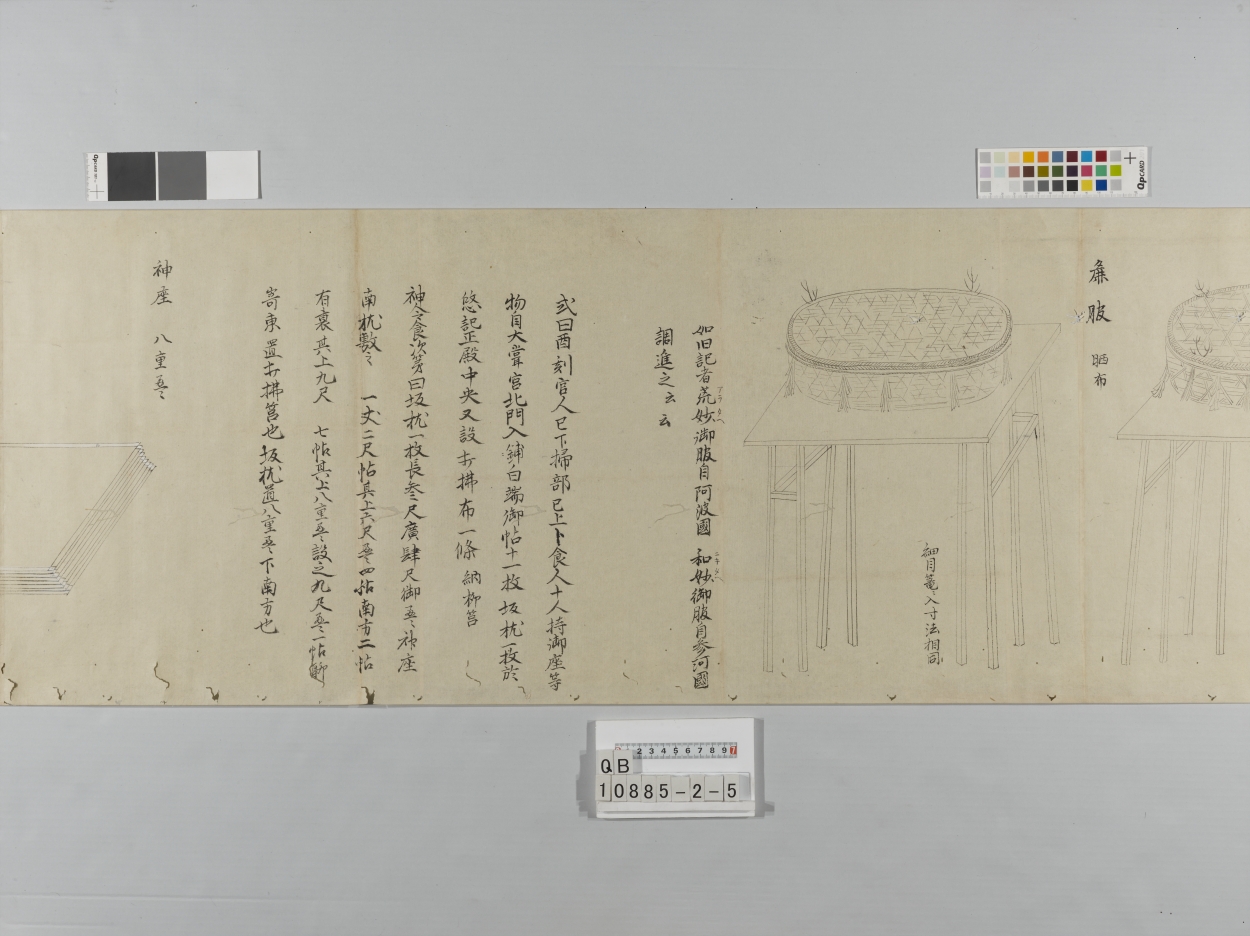 麁服 晒布
細目篭ニ入寸法相同
如旧記者荒妙御服自阿波國 和妙御服自参河國
アラタヘ
ニキタヘ
調進之云云
式曰酉刻官人已下掃部已上卜食人十人持御座等
物自大甞宮北門入鋪白端御帖十一枚坂枕一枚於
悠記正殿中央又設打拂布一條 納柳筥
神今食次第曰坂枕一枚長参尺廣肆尺御畳神座
南枕敷之 一丈二尺帖其上六尺畳四帖南方二帖
有裏其上九尺 七帖其上八重畳設之九尺畳一帖
寄東置打拂筥也坂枕置八重畳下南方也
神座 八重畳
QP CARD
QP CARD
2 3 4 5 6 7 8 9
QB
10885-2-5